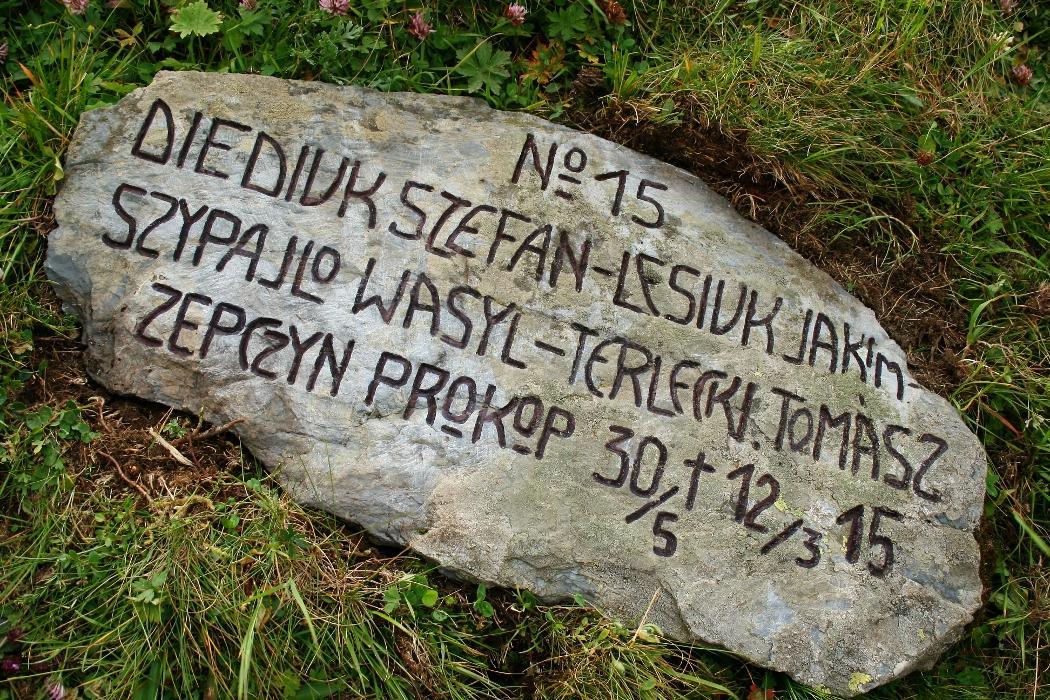 Nº 15
DIEDIUK SZEFAN-LESIUK JAKIM-
SZYPAJLO WASYL-TERLECKI. TOMASZ
ZEPCZYN PROKOP 30/5 † 12/3 15